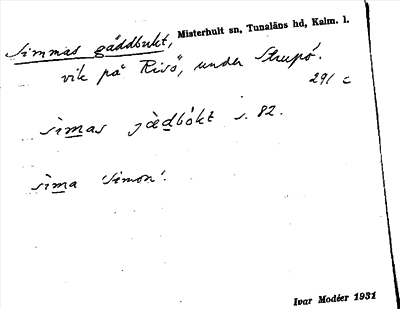 Simmas gäddbukt, Misterhult sn, Tunaläns hd, Kalm. l.
vik på Risö, under Strupö.
291 c
simas jædbókt s. 82.
sima 'Simon'.
Ivar Modéer 1931